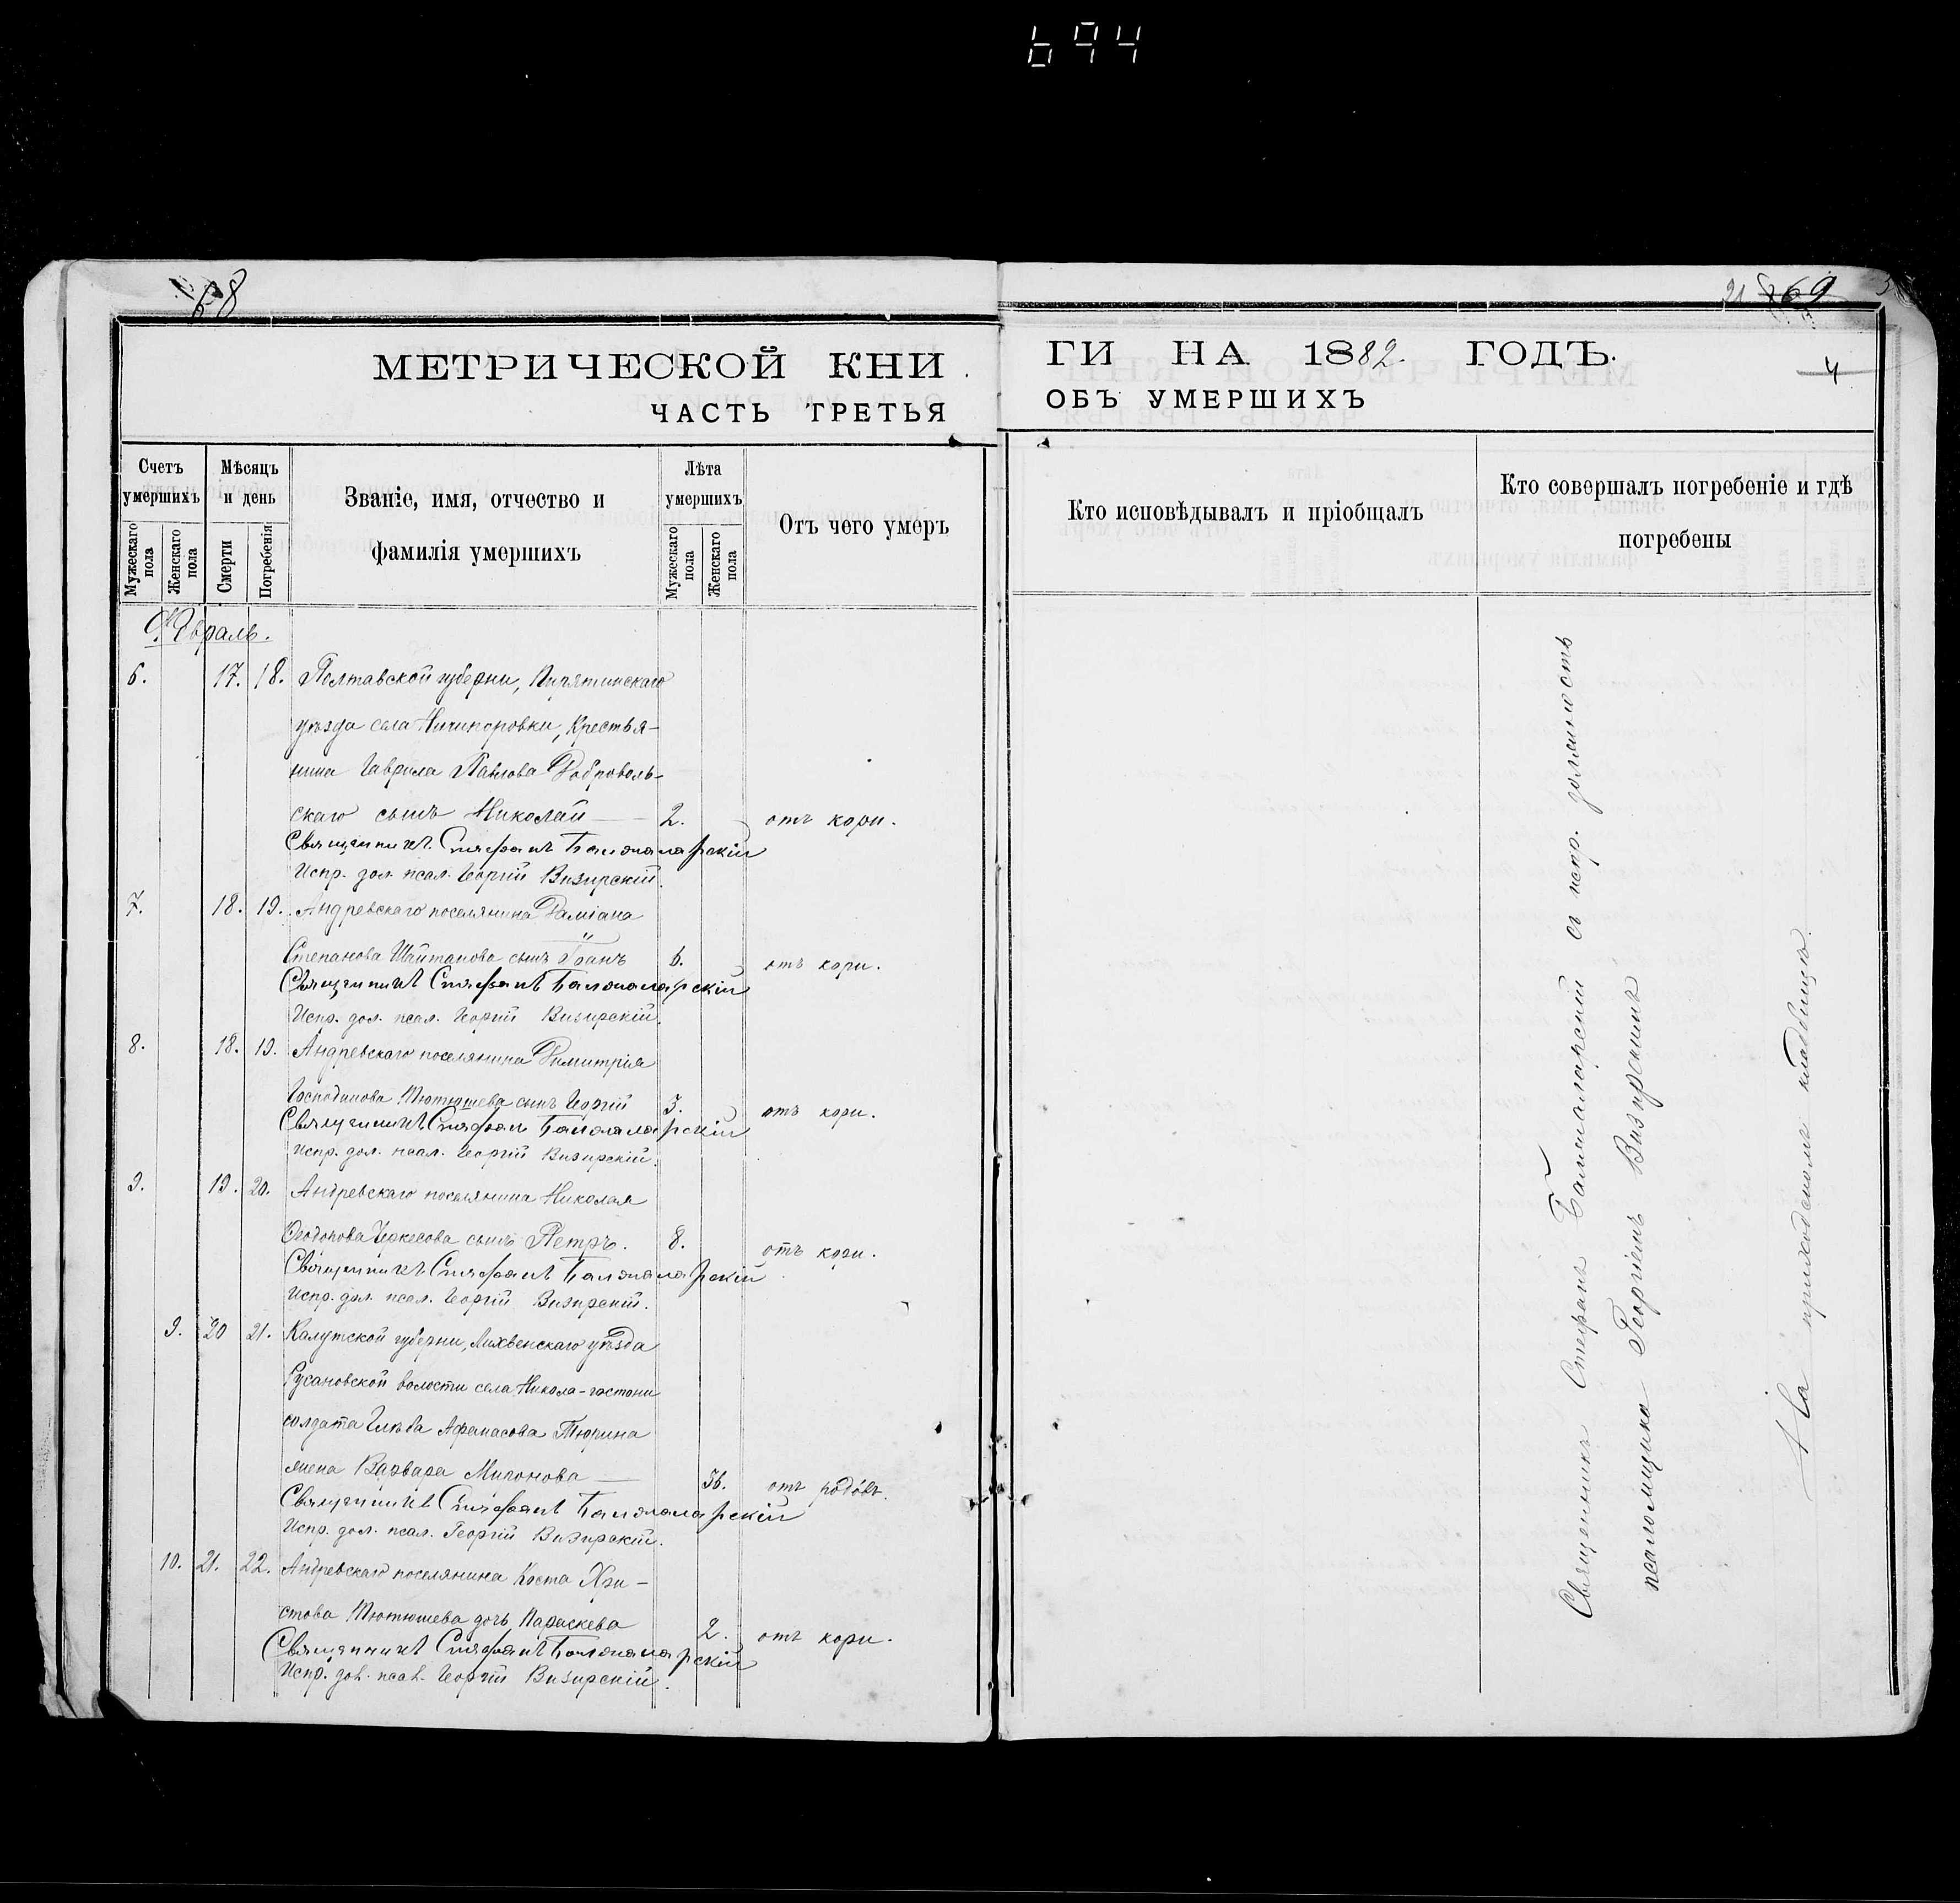 694
68
69
4
МЕТРИЧЕСКОЙ КНИ
ГИ НА 1882. ГОДЪ.
ЧАСТЬ ТРЕТЬЯ
ОБЪ УМЕРШИХЪ
Счетъ умершихъ
Мѣсяцъ и день
Званіе, имя, отчество и
фамилія умершихъ
Лѣта умершихъ
Отъ чего умеръ
Кто исповѣдывалъ и пріобщалъ
Кто совершалъ погребеніе и гдѣ
погребены
Мужескаго пола
Женскаго пола
Смерти
Погребенія
Мужескаго пола
Женскаго пола
Февраль.
6. 17. 18. Полтавской губерніи, Пирятинскаго
уѣзда села Ничипоровки, Крестья-
нина Гаврила Павлова Доброволь-
скаго сынъ Николай — 2. отъ кори.
Священникъ Стефанъ
Испр. дол. псал. Георгій Визирскій.
7. 18. 19. Андревскаго поселянина Даміана
Степанова Шайтанова сынъ Іоанъ 6. отъ кори.
Священникъ Стефанъ
Испр. дол. псал. Георгій Визирскій.
8. 18. 19. Андревскаго поселянина Димитрія
Господинова Тютюшева сынъ Георгій 3. отъ кори.
Священникъ Стефанъ
Испр. дол. псал. Георгій Визирскій.
9. 19. 20. Андревскаго поселянина Николая
Ѳеодорова Черкесова сынъ Петръ. 8. отъ кори.
Священникъ Стефанъ
Испр. дол. псал. Георгій Визирскій.
9. 20 21. Калужской губерніи, Лихвенскаго уѣзда
Русановской волости села Никола-гастони
солдата Афанасова Тюрина
жена Варвара Миронова — 36. отъ родовъ.
Священникъ Стефанъ
Испр. дол. псал. Георгій Визирскій.
10. 21. 22. Андревскаго поселянина Коста Хри-
стова Тютюшева дочь Параскева 2. отъ кори.
Священникъ Стефанъ
Испр. дол. псал. Георгій Визирскій.
Священникъ Стефанъ съ испр. должность
псаломщика Георгіемъ Визирскимъ
На приходскомъ кладбищѣ.